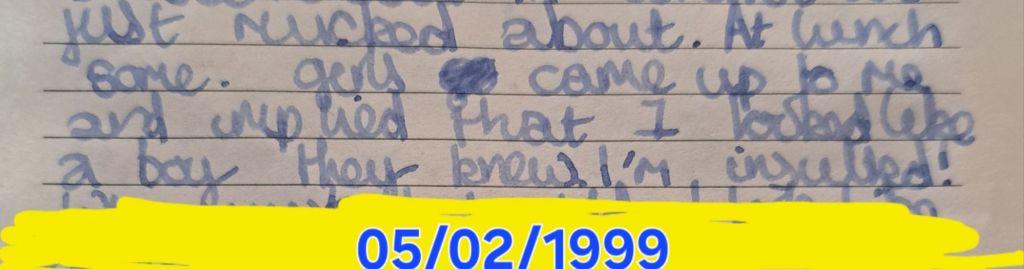 just mucked about. At lunch
some. girls came up to me
and implied that I looked like
a boy they knew. I'm insulted!
05/02/1999